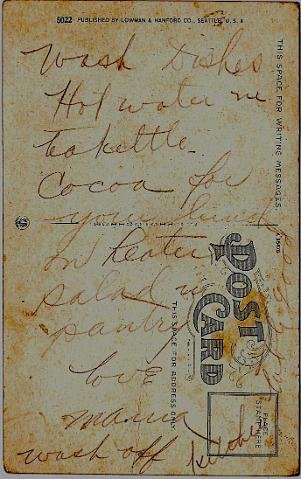 5022 PUBLISHED BY LOWMAN & HANFORD CO., SEATTLE, U.S.A
Wash Dishes
Hot water in
teakettle
Cocoa for
your lunch
on heater
salad in
pantry
love
mama
wash off
THIS SPACE FOR WRITING MESSAGES.
POST
CARD
THIS SPACE FOR ADDRESS ONLY
PLACE
STAMP HERE